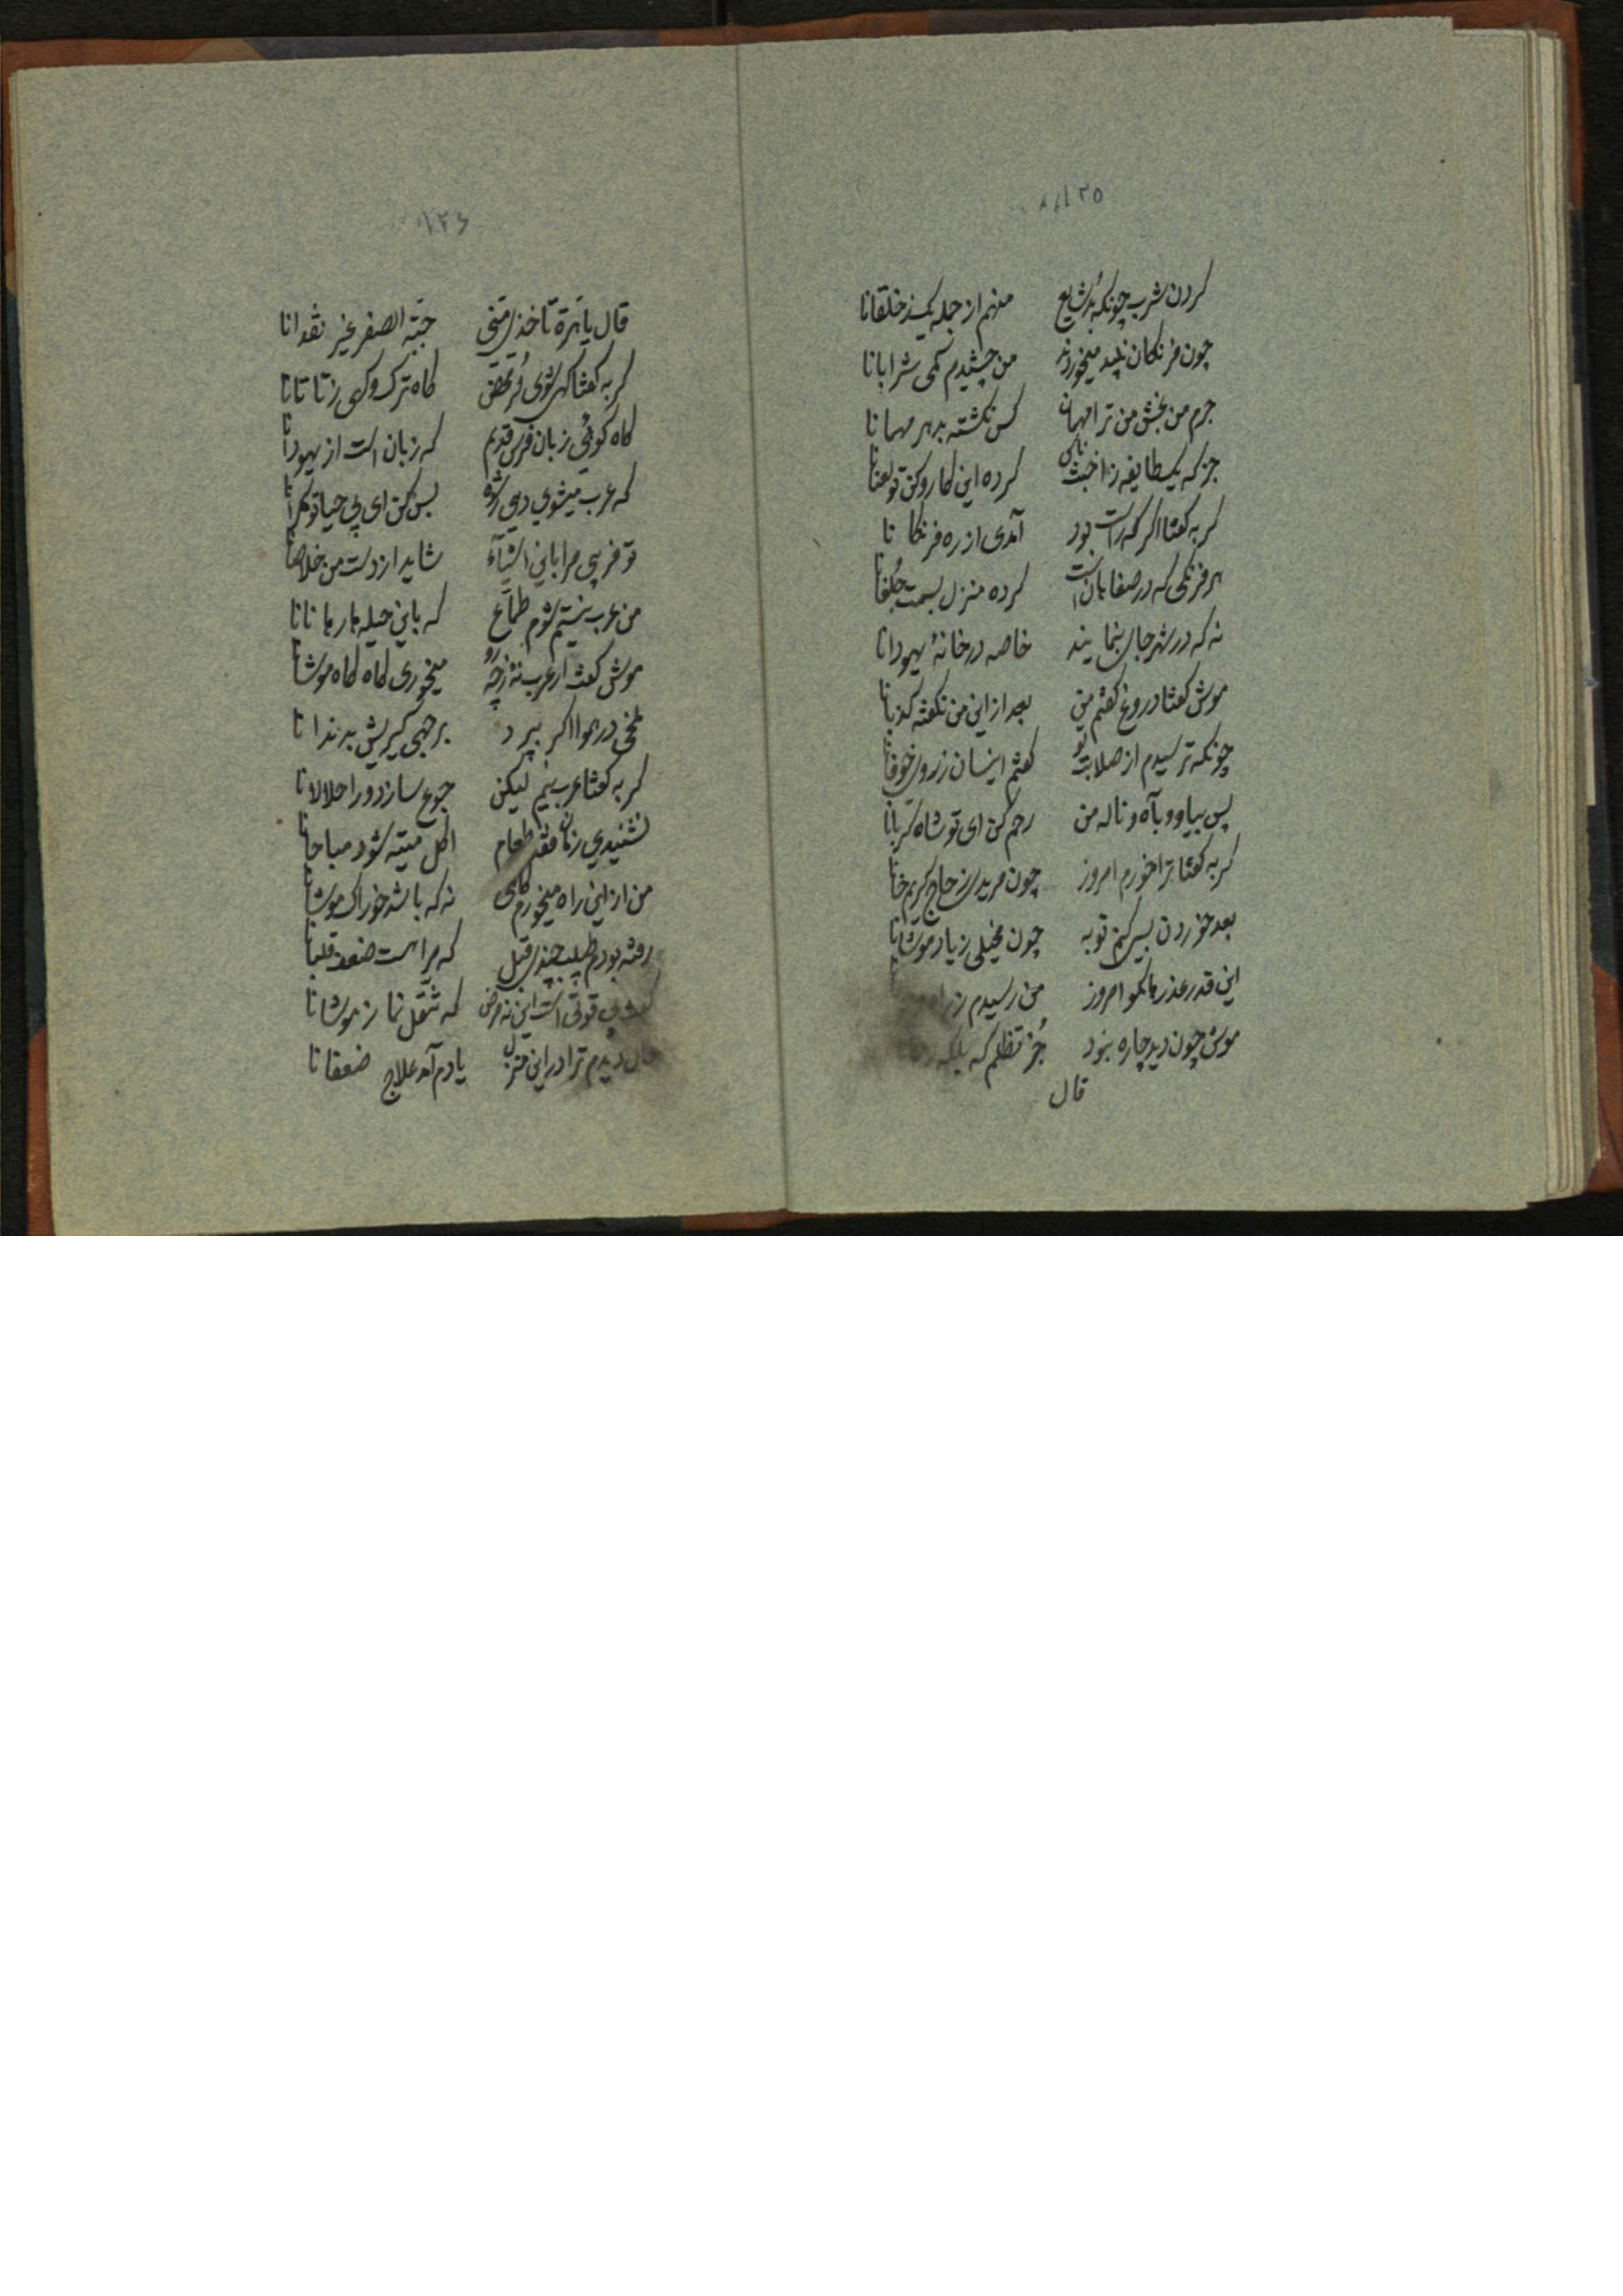 ۱۲۵
کردن شرب چونکه بُد شایع منهم از جمله یکیند خلقانا
چون فرنکان پلید میخوردند من چشیدم کمی شرابانا
جرم من بخش من ترا مهمان کس نکشته بدهر مهمانا
جز که یکطایفه ز اخبث ناس کرده این کار و کن تو لعنانا
کربه کفتا اکر که راست بود آمدی از ره فرنکانا
هر فرنکی که در صفاهانست کرده منزل بسمت جُلفانا
نه که در شهر جای بنمایند خاصه در خانهٔ یهودانا
موش کفتا دروغ کفتم من بعد از این من نکفته کذبانا
چونکه ترسیدم از صلابت تو کفتم اینسان ز روی خوفانا
پس بیا و بآه و ناله من رحم کن ای تو شاه کربانا
کربه کفتا ترا خورم امروز چون مریدی ز حاج کریمخانا
بعد خوردن بسی کنم توبه چون بخیلی ز یاد موشانا
این قدر عذرها مکو امروز من رسیدم
موش چون دید چاره نبود جُز تظلم که بلکه
قال
۱۲۶
قال یا هرة تأخذی منی حبّة الصفر غیر نقدانا
کربه کفتا کهی شوی تُرک محض کاه ترک و کهی ز تاتانا
کاه کوئی زبان فرس قدیم که زبان است از یهودانا
که عرب میشوی دمی بس کن ای بی حیا تو مکرانا
تو فریبی مرا باین اشیآء شاید از دست من خلاصانا
من عرب نیستم شوم طمّاع که باین حیله ها رهانانا
موش کفت ار عرب نهٔ ز چه رو میخوری کاه کاه موشانا
ملخی در هوا اکر بپرد برجهی کیریش بدندانا
کربه کفتا عرب نیم لیکن جوع سازد ورا حلالانا
نشنیدی زمان فقد طعام اکل میته شود مباحانا
من از این راه میخورم کاهی نه که باشد خوراک موشانا
رفته بودم طبیب چندی قبل که مرا هست ضعف قلبانا
کفت بی قوتی است این نه مرض که تنقل نما ز موشانا
دیدم ترا در این منزل یادم آمد علاج ضعفانا